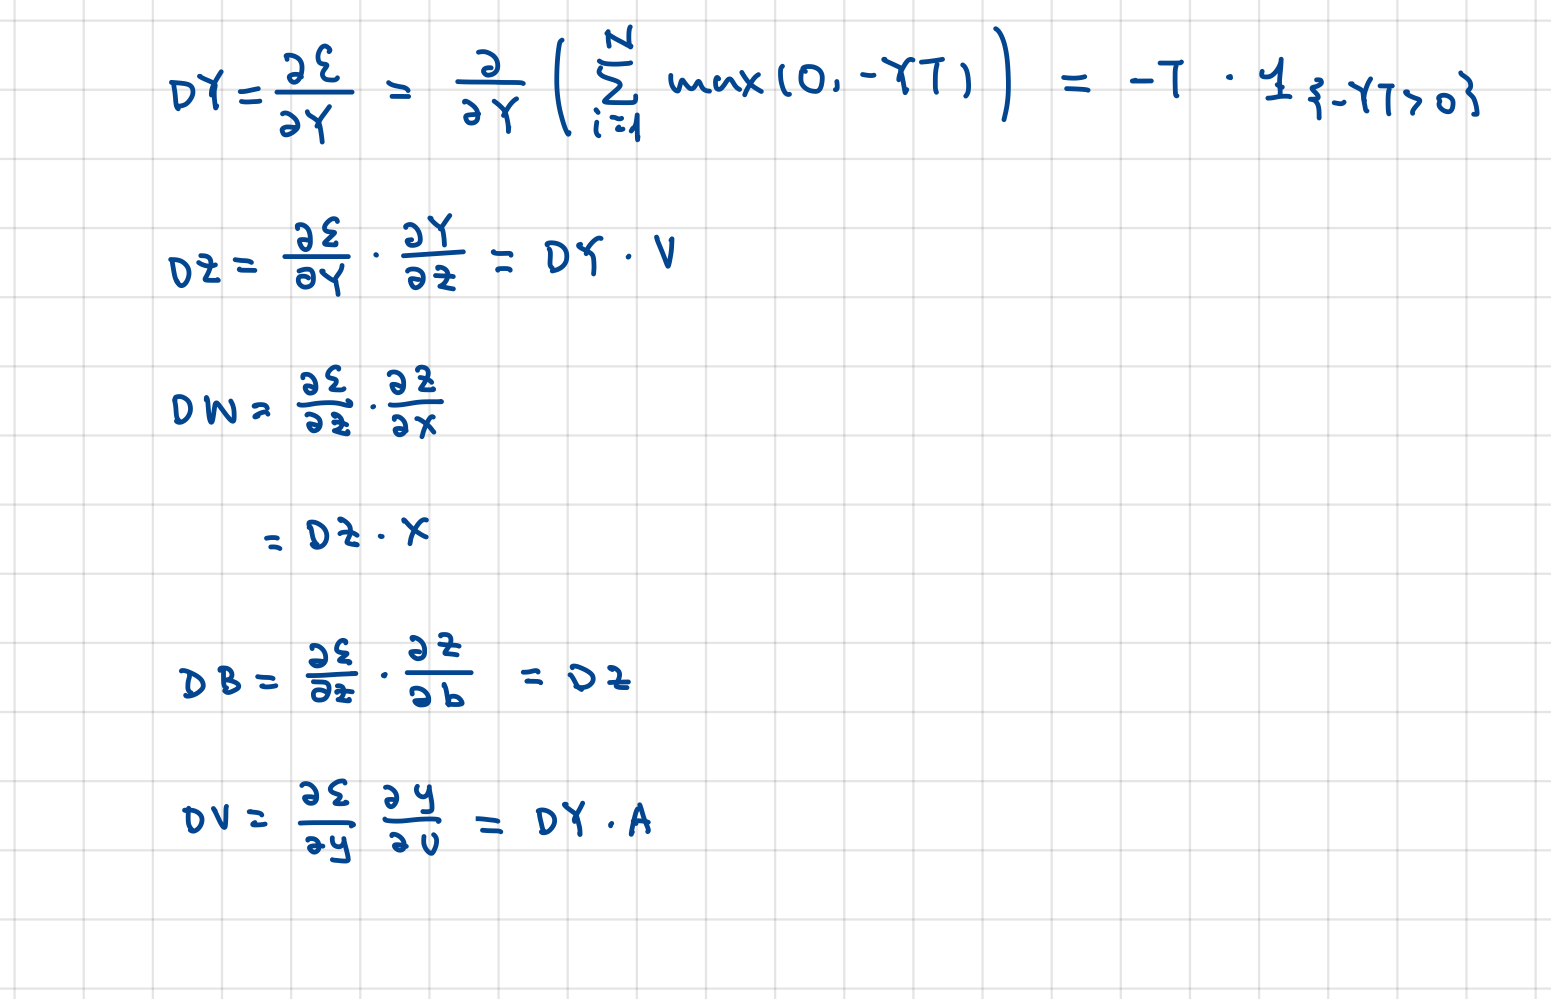 DY = ∂ℰ/∂Y = ∂/∂Y ( ∑_{i=1}^{N} max(0, -YT) ) = -T · 1_{{-YT > 0}}
DZ = ∂ℰ/∂Y · ∂Y/∂Z = DY · V
DW = ∂ℰ/∂Z · ∂Z/∂X
= DZ · X
DB = ∂ℰ/∂Z · ∂Z/∂b = DZ
DV = ∂ℰ/∂y ∂y/∂v = DY · A